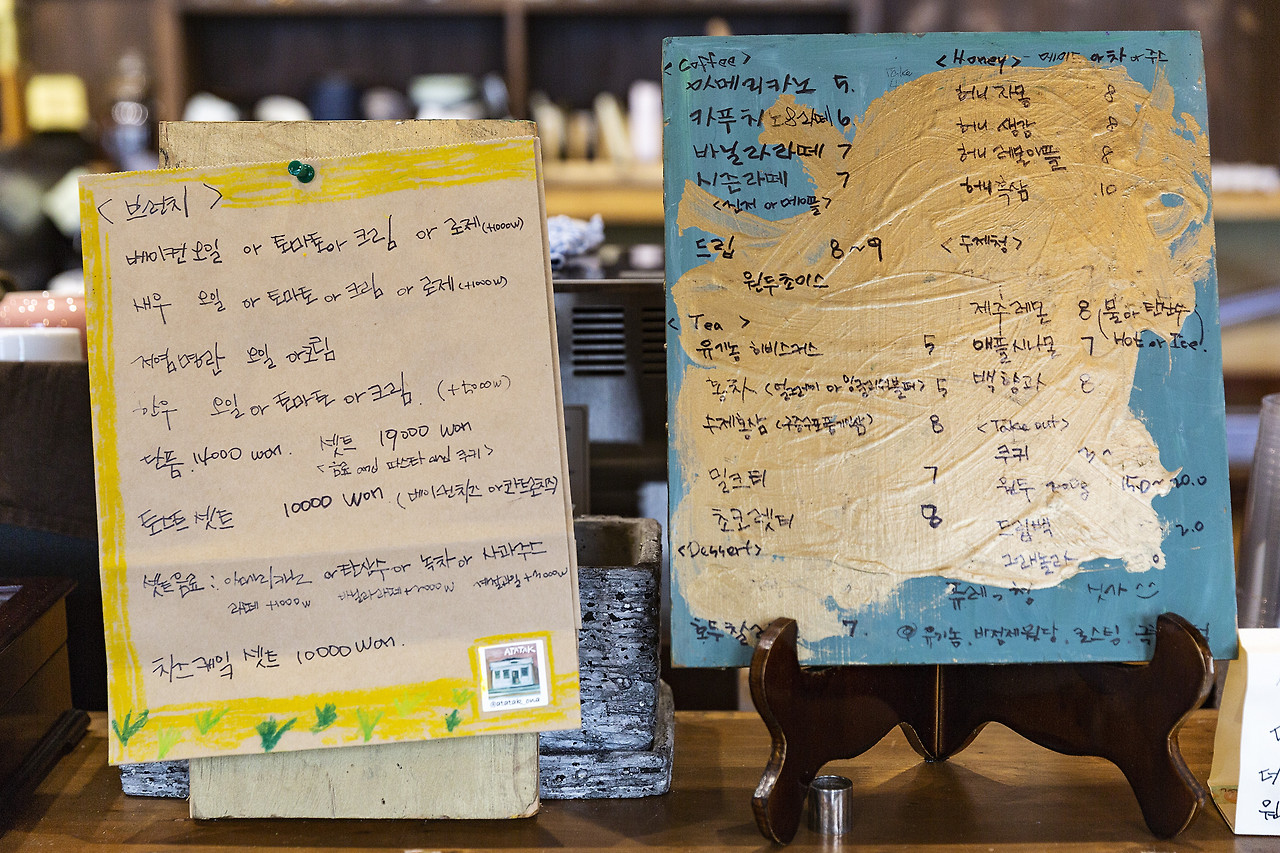 <브런치>
베이컨 오일 or 토마토 or 크림 or 로제 (+1000w)
새우 오일 or 토마토 or 크림 or 로제 (+1000w)
저염명란 오일 or 크림
한우 오일 or 토마토 or 크림. (+5000w)
단품 14000 won. 셋트 19000 won
<음료 and 파스타 and 쿠키>
토스트 셋트 10000 won (베이컨치즈 or
셋트음료: 아메리카노 or 탄산수 or 녹차 or 사과쥬스
라떼 +1000w 바닐라라떼 +2000w
치즈케잌 셋트 10000 won.
AIATAK
<Coffee>
아메리카노 5.
카푸치노 or 라떼 6
바닐라라떼 7
시즌라떼 7
드립 8~9
원두초이스
<Tea>
유기농 히비스커스 5
홍차 5
수제홍삼 8
밀크티 7
초코렛티 8
<Dessert>
호두찰 7.
<Honey> - 메이드 or 차 or 주스
허니 자몽 8
허니 생강 8
허니 레몬애플 8
허니 흑삼 10
<수제청>
제주레몬 8 (물 or 탄산수
애플시나몬 7 Hot or Ice.
백향과 8
<Take out>
쿠키 3~
원두 200g 15.0~20.0
드립백 2.0
그래놀라
@ 유기농 비정제원당. 로스팅.
더
원